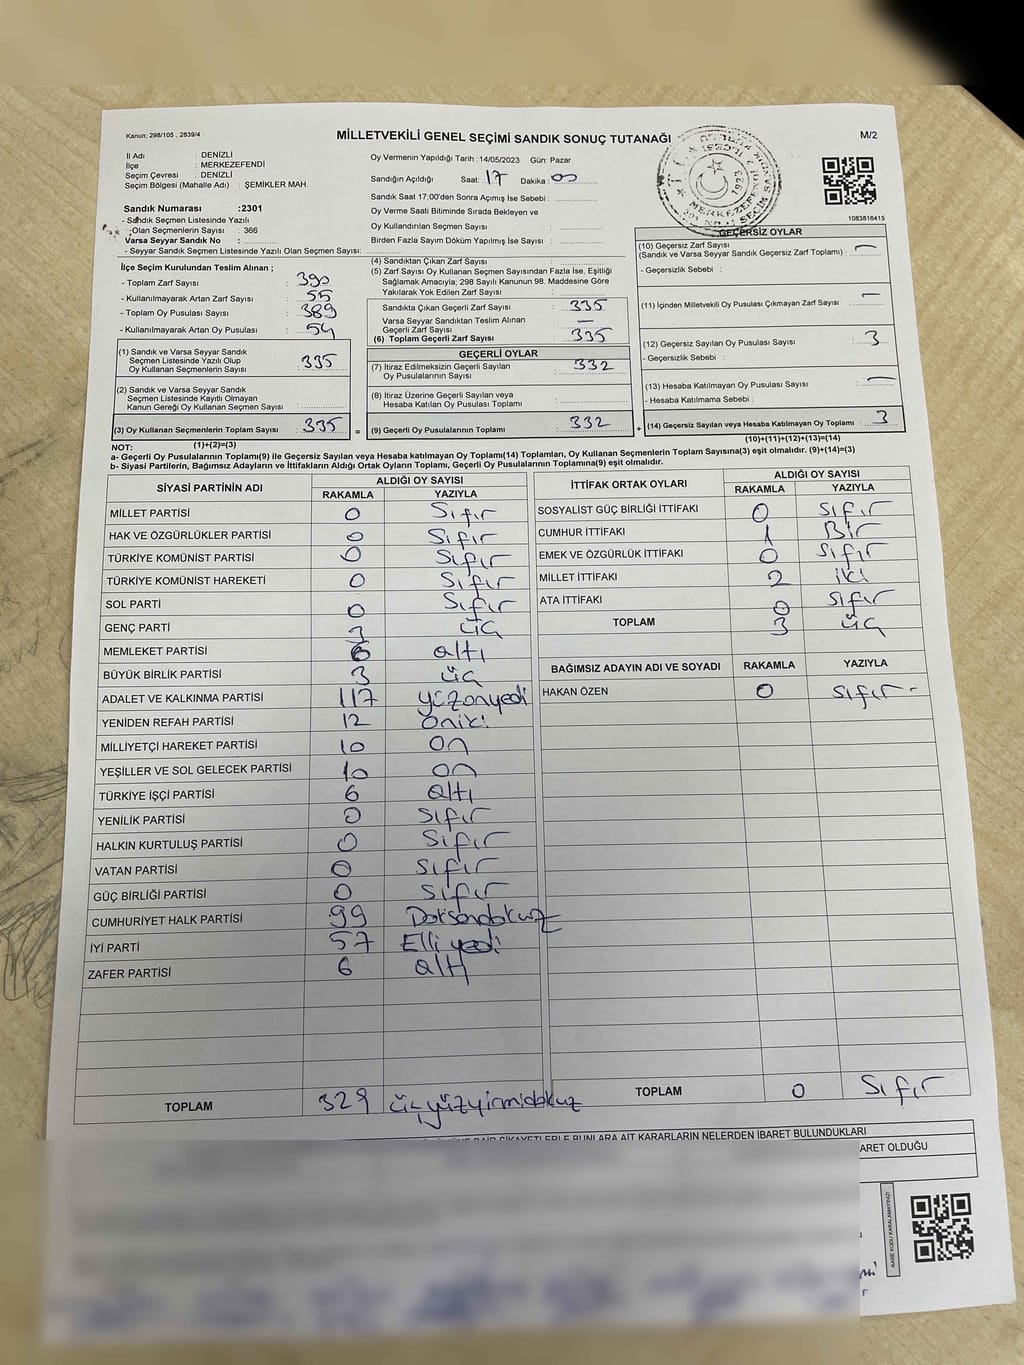 Kanun; 298/105 , 2839/4
MİLLETVEKİLİ GENEL SEÇİMİ SANDIK SONUÇ TUTANAĞI
M/2
İl Adı : DENİZLİ
İlçe : MERKEZEFENDİ
Seçim Çevresi : DENİZLİ
Seçim Bölgesi (Mahalle Adı) : ŞEMİKLER MAH.
Sandık Numarası :2301
- Sandık Seçmen Listesinde Yazılı
Olan Seçmenlerin Sayısı : 366
Varsa Seyyar Sandık No :
- Seyyar Sandık Seçmen Listesinde Yazılı Olan Seçmen Sayısı:
Oy Vermenin Yapıldığı Tarih :14/05/2023 Gün: Pazar
Sandığın Açıldığı Saat: 17 Dakika: 00
Sandık Saat 17:00'den Sonra Açımış İse Sebebi :
Oy Verme Saati Bitiminde Sırada Bekleyen ve
Oy Kullandırılan Seçmen Sayısı :
Birden Fazla Sayım Döküm Yapılmış İse Sayısı :
1083816415
İlçe Seçim Kurulundan Teslim Alınan ;
- Toplam Zarf Sayısı : 390
- Kullanılmayarak Artan Zarf Sayısı : 55
- Toplam Oy Pusulası Sayısı : 389
- Kullanılmayarak Artan Oy Pusulası : 54
(1) Sandık ve Varsa Seyyar Sandık
Seçmen Listesinde Yazılı Olup
Oy Kullanan Seçmenlerin Sayısı : 335
(2) Sandık ve Varsa Seyyar Sandık
Seçmen Listesinde Kayıtlı Olmayan
Kanun Gereği Oy Kullanan Seçmen Sayısı :
(3) Oy Kullanan Seçmenlerin Toplam Sayısı : 335 =
(4) Sandıktan Çıkan Zarf Sayısı :
(5) Zarf Sayısı Oy Kullanan Seçmen Sayısından Fazla İse, Eşitliği
Sağlamak Amacıyla; 298 Sayılı Kanunun 98. Maddesine Göre
Yakılarak Yok Edilen Zarf Sayısı :
Sandıkta Çıkan Geçerli Zarf Sayısı : 335
Varsa Seyyar Sandıktan Teslim Alınan
Geçerli Zarf Sayısı : —
(6) Toplam Geçerli Zarf Sayısı : 335
GEÇERLİ OYLAR
(7) İtiraz Edilmeksizin Geçerli Sayılan
Oy Pusulalarının Sayısı : 332
(8) İtiraz Üzerine Geçerli Sayılan veya
Hesaba Katılan Oy Pusulası Toplamı :
(9) Geçerli Oy Pusulalarının Toplamı : 332 +
GEÇERSİZ OYLAR
(10) Geçersiz Zarf Sayısı
(Sandık ve Varsa Seyyar Sandık Geçersiz Zarf Toplamı) : —
- Geçersizlik Sebebi :
(11) İçinden Milletvekili Oy Pusulası Çıkmayan Zarf Sayısı : —
(12) Geçersiz Sayılan Oy Pusulası Sayısı : 3
- Geçersizlik Sebebi :
(13) Hesaba Katılmayan Oy Pusulası Sayısı : —
- Hesaba Katılmama Sebebi :
(14) Geçersiz Sayılan veya Hesaba Katılmayan Oy Toplamı : 3
NOT: (1)+(2)=(3) (10)+(11)+(12)+(13)=(14)
a- Geçerli Oy Pusulalarının Toplamı(9) ile Geçersiz Sayılan veya Hesaba katılmayan Oy Toplamı(14) Toplamları, Oy Kullanan Seçmenlerin Toplam Sayısına(3) eşit olmalıdır. (9)+(14)=(3)
b- Siyasi Partilerin, Bağımsız Adayların ve İttifakların Aldığı Ortak Oyların Toplamı, Geçerli Oy Pusulalarının Toplamına(9) eşit olmalıdır.
SİYASİ PARTİNİN ADI ALDIĞI OY SAYISI
RAKAMLA YAZIYLA
MİLLET PARTİSİ 0 Sıfır
HAK VE ÖZGÜRLÜKLER PARTİSİ 0 Sıfır
TÜRKİYE KOMÜNİST PARTİSİ 0 Sıfır
TÜRKİYE KOMÜNİST HAREKETİ 0 Sıfır
SOL PARTİ 0 Sıfır
GENÇ PARTİ 3 üç
MEMLEKET PARTİSİ 6 altı
BÜYÜK BİRLİK PARTİSİ 3 üç
ADALET VE KALKINMA PARTİSİ 117 yüzonyedi
YENİDEN REFAH PARTİSİ 12 Oniki
MİLLİYETÇİ HAREKET PARTİSİ 10 On
YEŞİLLER VE SOL GELECEK PARTİSİ 10 On
TÜRKİYE İŞÇİ PARTİSİ 6 altı
YENİLİK PARTİSİ 0 Sıfır
HALKIN KURTULUŞ PARTİSİ 0 Sıfır
VATAN PARTİSİ 0 Sıfır
GÜÇ BİRLİĞİ PARTİSİ 0 Sıfır
CUMHURİYET HALK PARTİSİ 99 Doksandokuz
İYİ PARTİ 57 Elli yedi
ZAFER PARTİSİ 6 altı
TOPLAM 329 üçyüzyirmidokuz
İTTİFAK ORTAK OYLARI ALDIĞI OY SAYISI
RAKAMLA YAZIYLA
SOSYALİST GÜÇ BİRLİĞİ İTTİFAKI 0 Sıfır
CUMHUR İTTİFAKI 1 Bir
EMEK VE ÖZGÜRLÜK İTTİFAKI 0 Sıfır
MİLLET İTTİFAKI 2 iki
ATA İTTİFAKI 0 sıfır
TOPLAM 3 üç
BAĞIMSIZ ADAYIN ADI VE SOYADI RAKAMLA YAZIYLA
HAKAN ÖZEN 0 sıfır
TOPLAM 0 Sıfır
BUNLARA AİT KARARLARIN NELERDEN İBARET BULUNDUKLARI
ARET OLDUĞU
KARE KODU KARALAMAYINIZ!